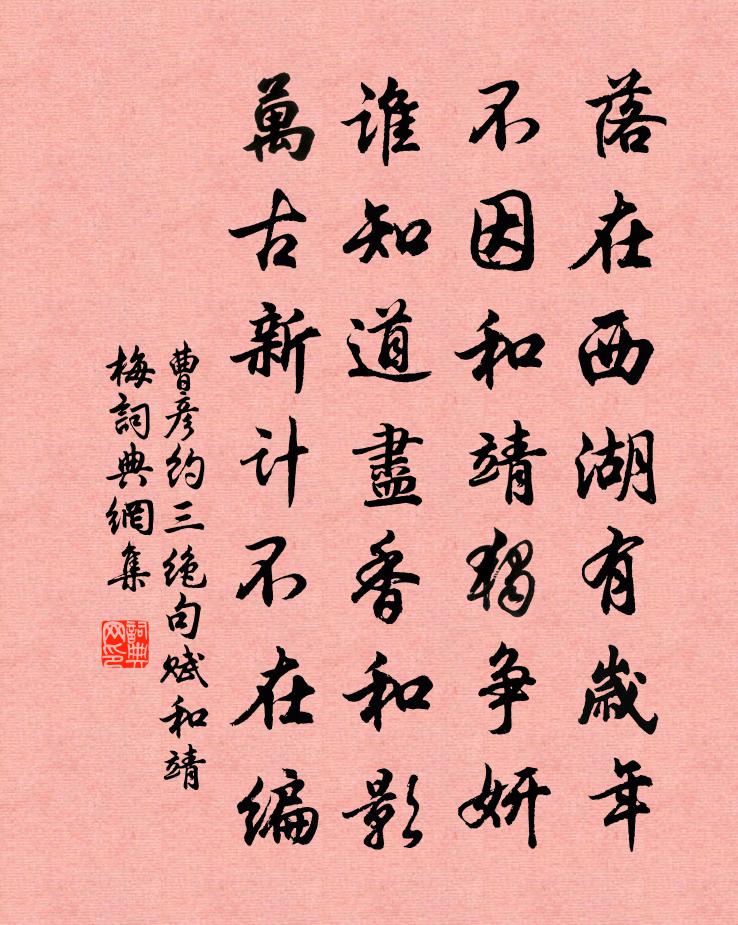 落在西湖有歲年
不因和靖獨争妍
誰知道盡香和影
萬古新计不在编
曹彦约三绝句赋和靖
梅詞典網集
詞典
网印